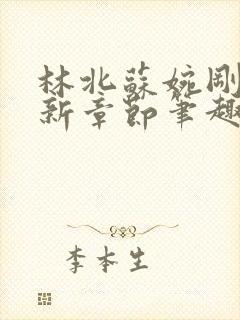 林北蘇婉剛
新章節筆趣
李本生